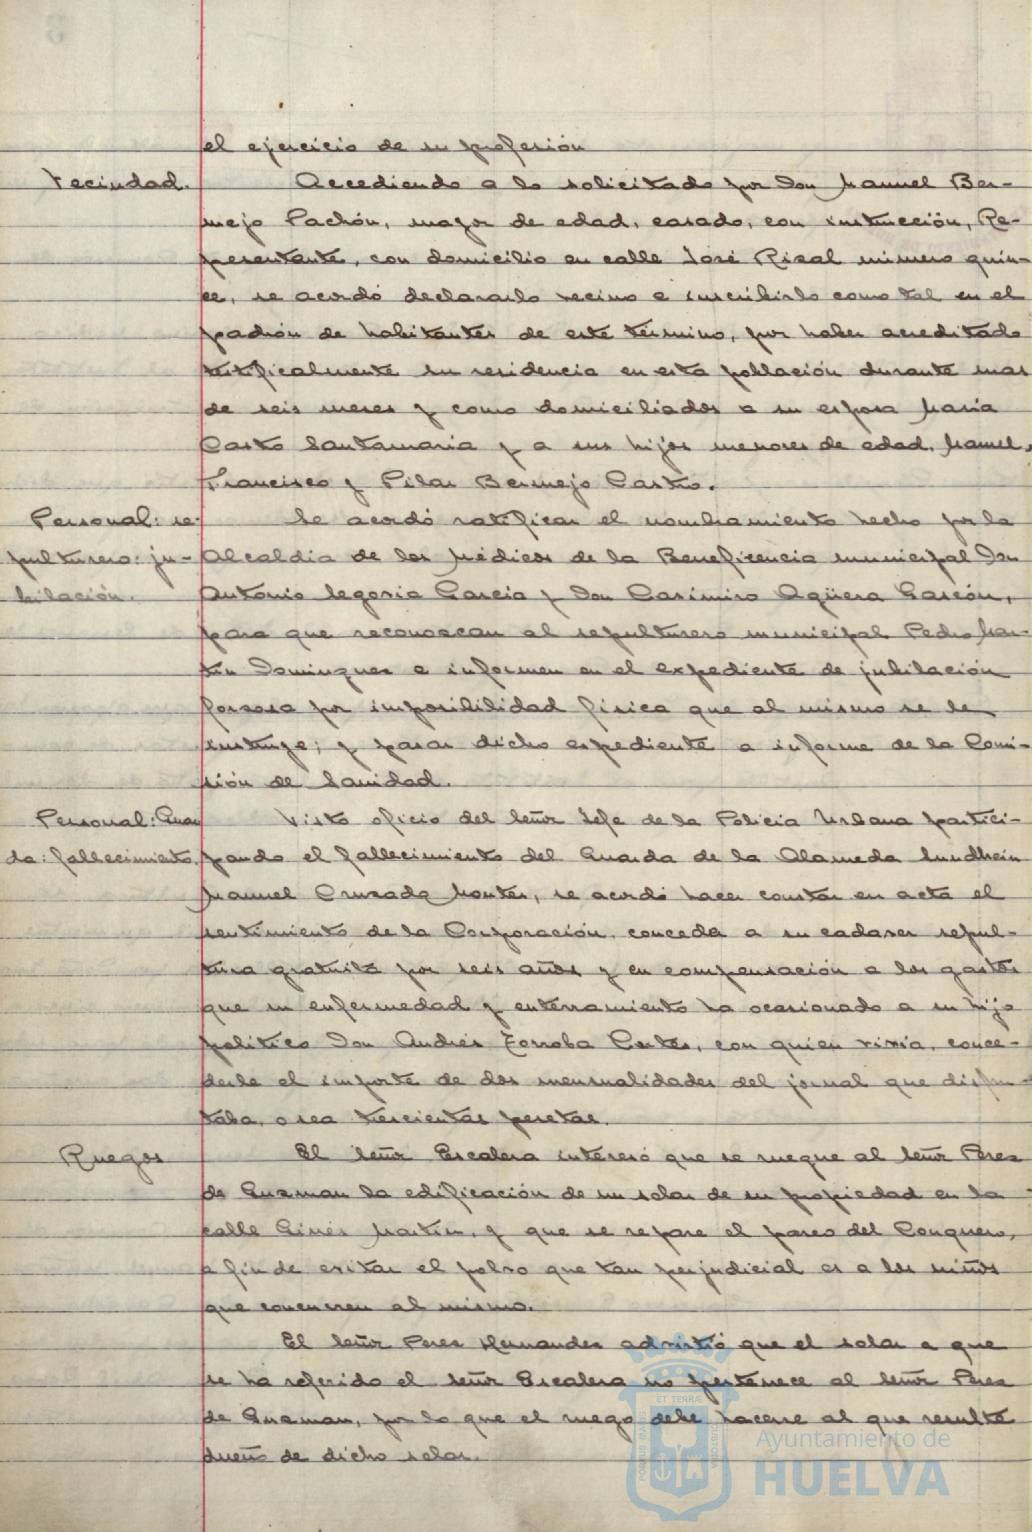 el ejercicio de su profesión
Vecindad.
Accediendo a lo solicitado por Don Manuel Ber-
mejo Pachón, mayor de edad, casado, con instrucción, Re-
presentante, con domicilio en calle José Rizal número quin-
ce, se acordó declararlo vecino e inscribirlo como tal en el
padrón de habitantes de este término, por haber acreditado
testificalmente su residencia en esta población durante mas
de seis meses y como domiciliados a su esposa María
Casto Santamaria y a sus hijos menores de edad, Manuel,
Francisco y Pilar Bermejo Castro.
Personal: se-
pulturero: ju-
bilación.
Se acordó ratificar el nombramiento hecho por la
Alcaldía de los Médicos de la Beneficencia municipal Don
Antonio Segovia García y Don Casimiro Agüera Gascón,
para que reconozcan al sepulturero municipal Pedro Mar-
tín Dominguez e informen en el expediente de jubilación
forzosa por imposibilidad física que al mismo se le
instruye; y pasar dicho expediente a informe de la Comi-
sión de Sanidad.
Personal: Guar
da: fallecimiento.
Visto oficio del Señor Jefe de la Policía Urbana partici-
pando el fallecimiento del Guarda de la Alameda Sundheim
Manuel Cruzado Montes, se acordó hacer constar en acta el
sentimiento de la Corporación, conceda a su cadaver sepul-
tura gratuita por seis años y en compensación a los gastos
que su enfermedad y enterramiento ha ocasionado a su hijo
político Don Andrés Zorroba, con quien vivía, conce-
derle el importe de dos mensualidades del jornal que disfru-
taba, o sea trescientas pesetas.
Ruegos
El Señor Escalera interesó que se ruegue al Señor Perez
de Guzman la edificación de un solar de su propiedad en la
calle Ginés Martín, y que se repare el paseo del Conquero,
a fin de evitar el polvo que tan perjudicial es a los niños
que concurren al mismo.
El Señor Perez Hernandez advirtió que el solar a que
se ha referido el Señor Escalera no pertenece al Señor Perez
de Guzman, por lo que el ruego debe hacerse al que resulte
dueño de dicho solar.
Ayuntamiento de
HUELVA